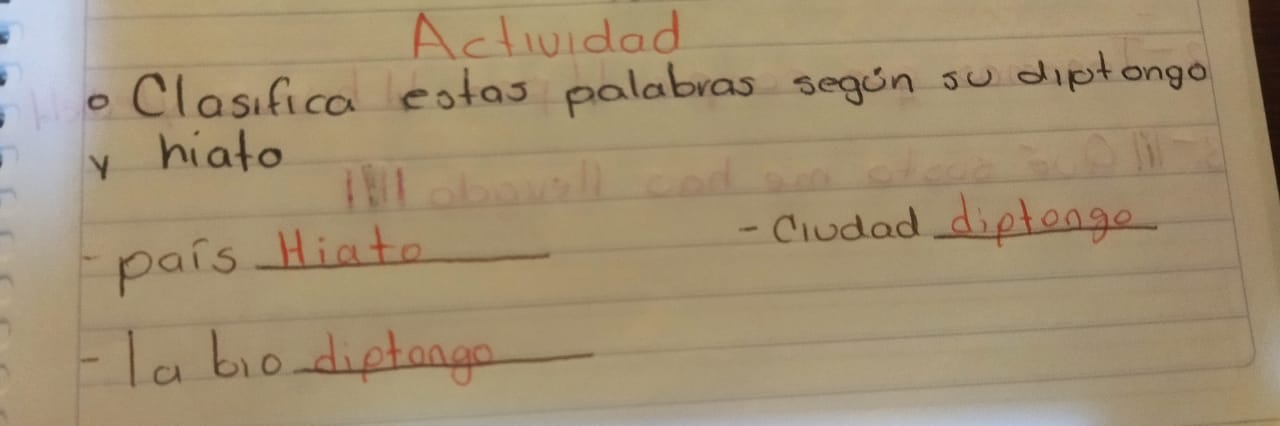 Actividad
o Clasifica estas palabras según su diptongo
y hiato
- país Hiato
- Ciudad diptongo
- labio diptongo